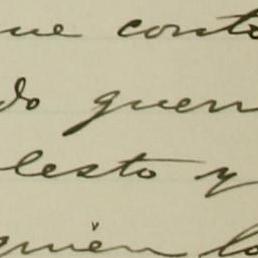 ue conta
do guerr
lesto y
quién lo